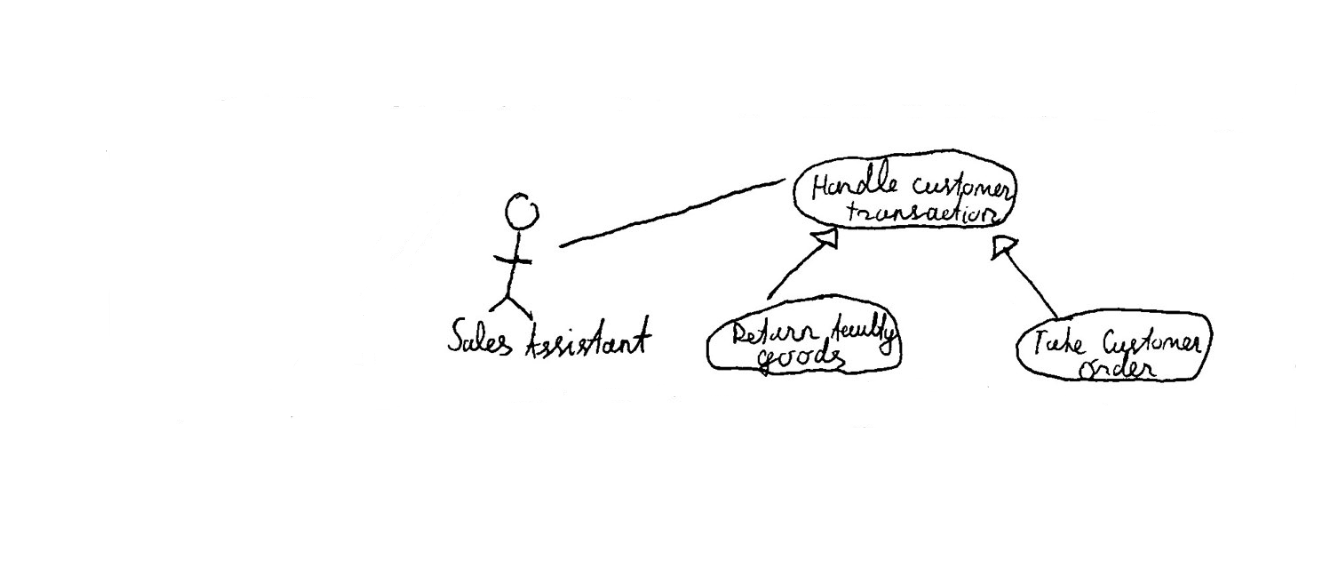 Handle customer
transaction
Sales Assistant
Return faulty
goods
Take Customer
order